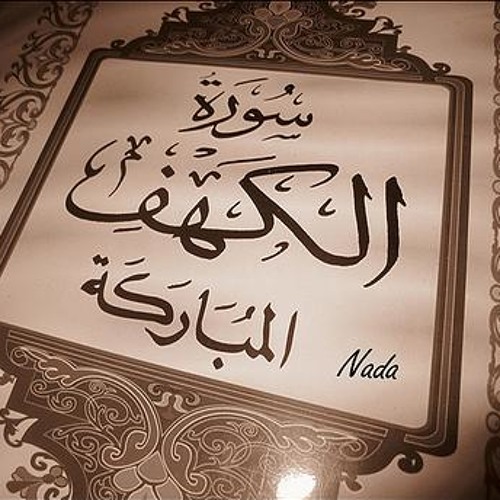 سُورَة
الكَهْفِ
المُبَارَكَة
Nada